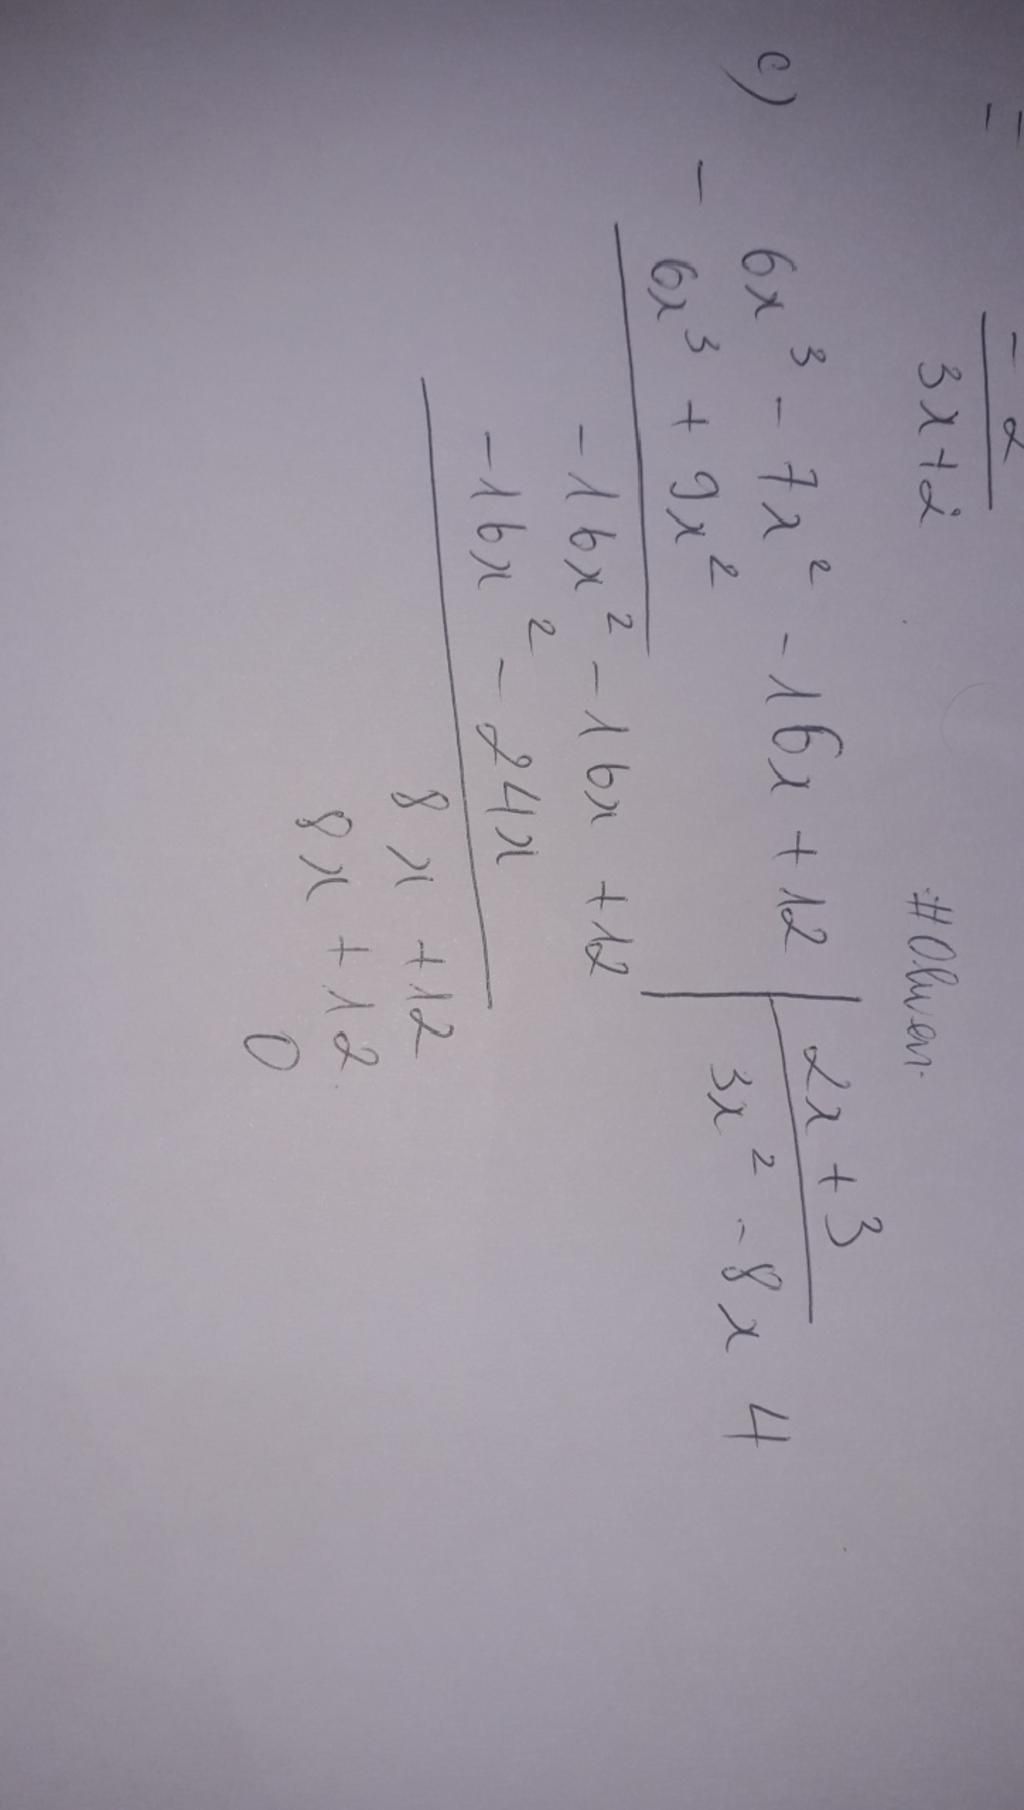 = - 2
3x+2
#Oliver.
c) 6x³ - 7x² - 16x + 12 | 2x + 3
- 6x³ + 9x² 3x² - 8x 4
-16x² - 16x + 12
-16x² - 24x
8x + 12
8x + 12
0